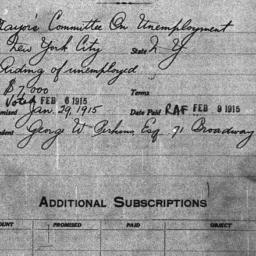 Mayor's Committee On Unemployment
New York City State N. Y.
Aiding of unemployed
$7,000 Terms
Voted FEB 6 1915
Jan. 29, 1915 Date Paid RAF FEB 9 1915
George W. Perkins, Esq. 71 Broadway
ADDITIONAL SUBSCRIPTIONS
PROMISED PAID OBJECT